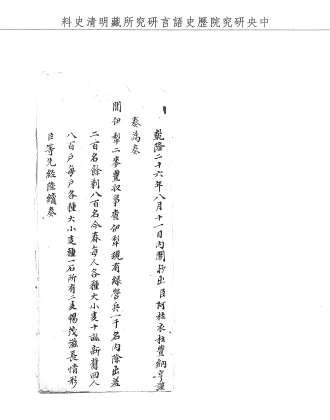 中央研究院歷史語言研究所藏明清史料
乾隆二十六年八月十一日內閣抄出臣阿桂謹
奏為奏
聞伊犁二麥豐收事竊伊犁現有綠營兵一千名內除出差
二百名餘剩八百名今春每人各種大小麥十畝新舊回人
八百戶每戶各種大小麥種一石所有二麥暢茂滋長情形
臣等先經陸續奏